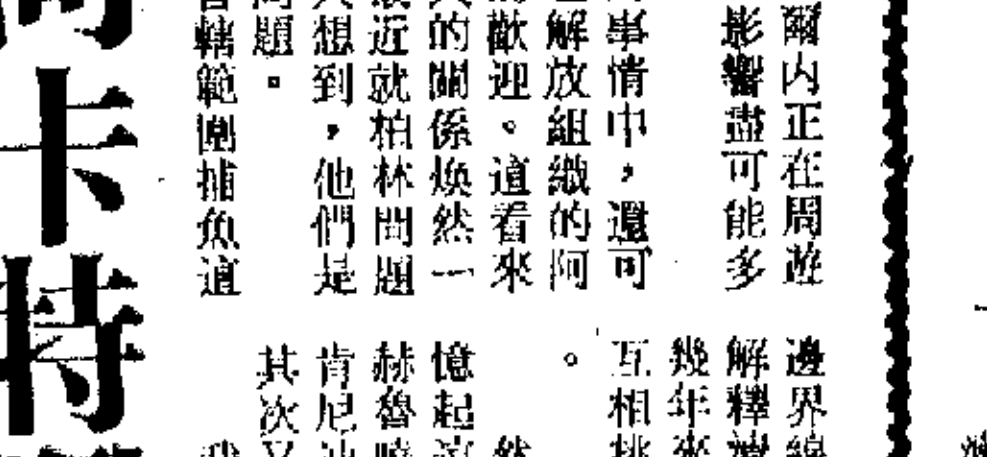 爾内正在周遊
影響盡可能多
事情中，還可
解放組織的阿
歡迎。這看來
的關係煥然一
近就柏林問題
想到，他們是
題。
轄範圍捕魚這
邊界線
解釋
幾年來
互相
。
然
憶起這
赫魯曉
肯尼迪
其次又
我
卡特